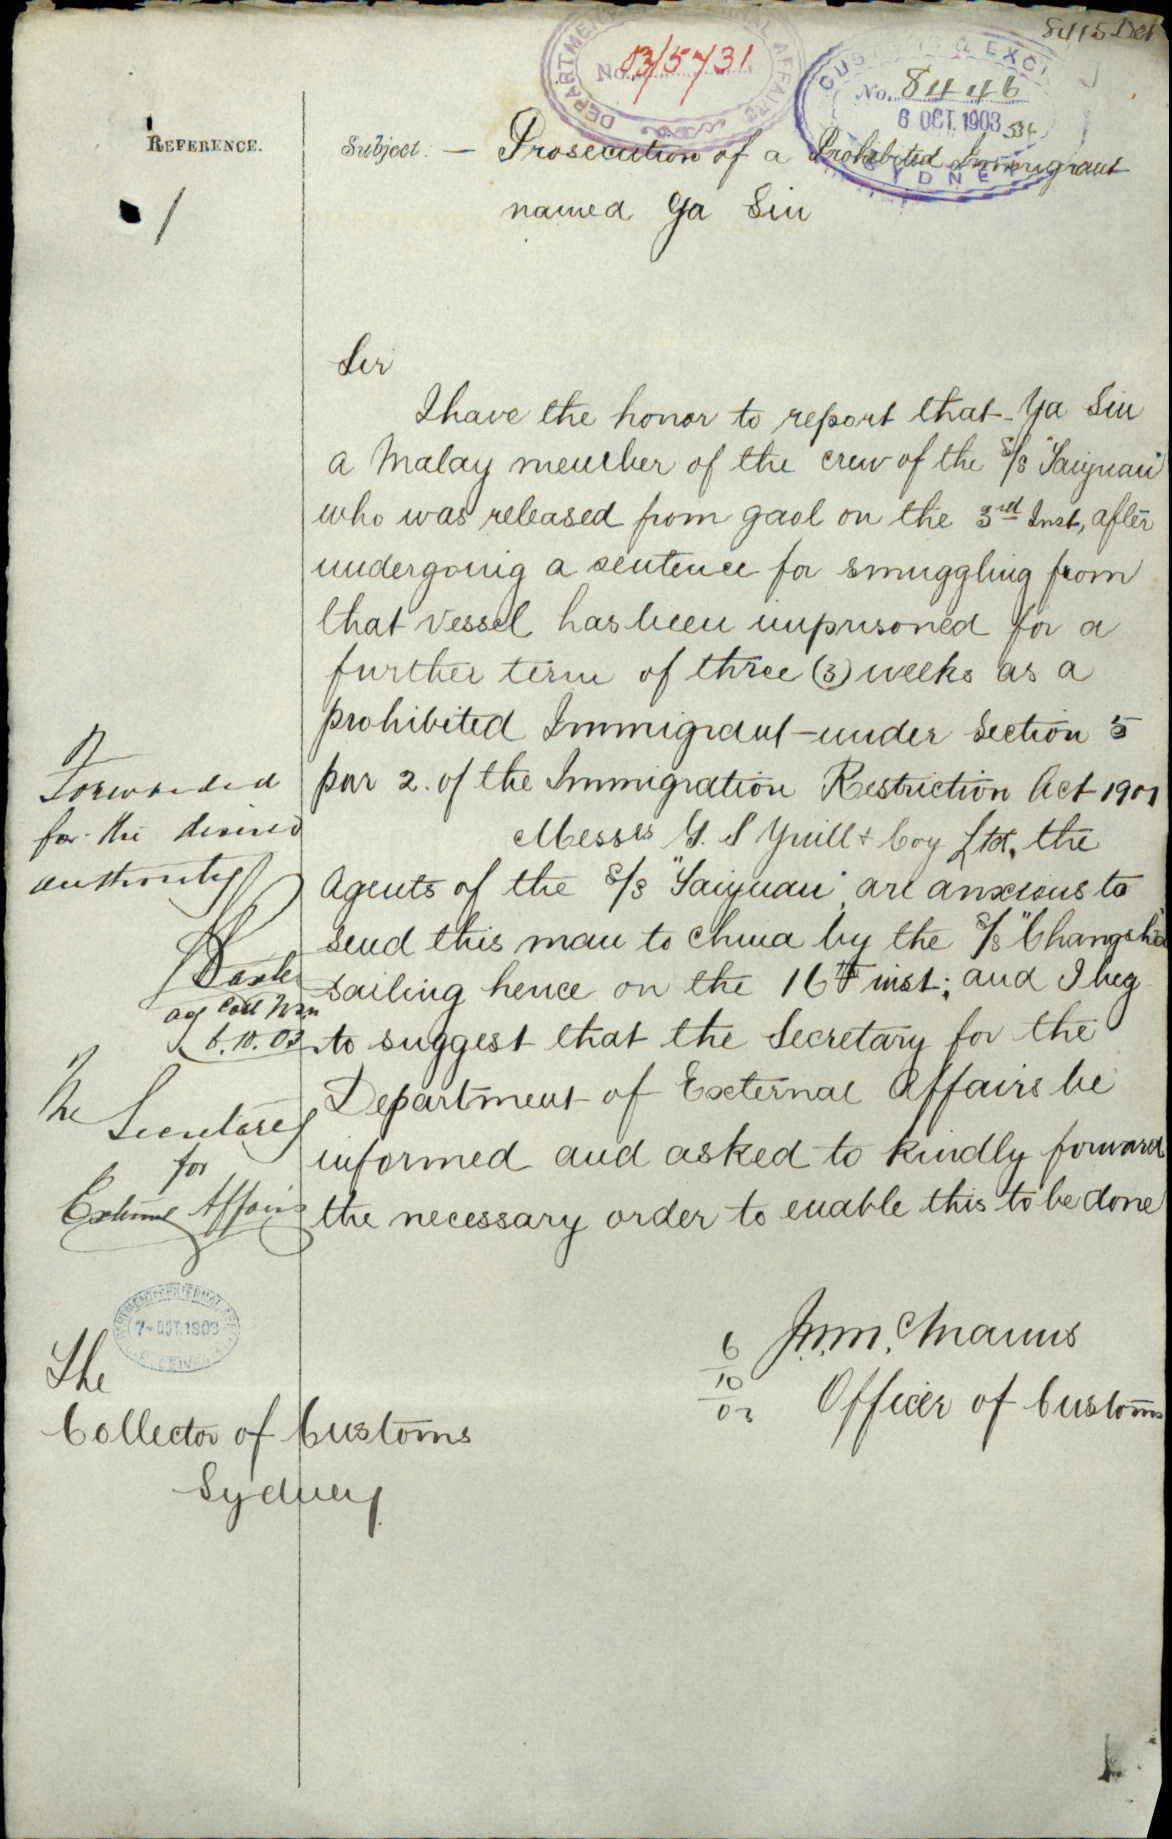 8415 Det
DEPARTMENT EXTERNAL AFFAIRS
No. 03/5731
CUSTOMS & EXCISE
No. 8446
6 OCT. 1903
SYDNEY
REFERENCE.
Subject. — Prosecution of a Prohibited Immigrant
named Ya Sin
Sir
I have the honor to report that Ya Sin
a Malay member of the crew of the S/S "Taiyuan"
who was released from gaol on the 3rd Inst, after
undergoing a sentence for smuggling from
that vessel has been imprisoned for a
further term of three (3) weeks as a
prohibited Immigrant under Section 5
par 2. of the Immigration Restriction Act 1901
Messrs G. S Yuill & Coy Ltd, the
Agents of the S/S "Taiyuan" are anxious to
send this man to China by the S/S "Changsha"
sailing hence on the 16th inst; and I beg
to suggest that the Secretary for the
Department of External Affairs be
informed and asked to kindly forward
the necessary order to enable this to be done
J.M.M. Manus
Officer of Customs
6
10
03
Forwarded
for the desired
authority
Baxter
6.10.03
The Secretary
for
External Affairs
DEPARTMENT OF EXTERNAL AFFAIRS
7-OCT.1903
RECEIVED
The
Collector of Customs
Sydney